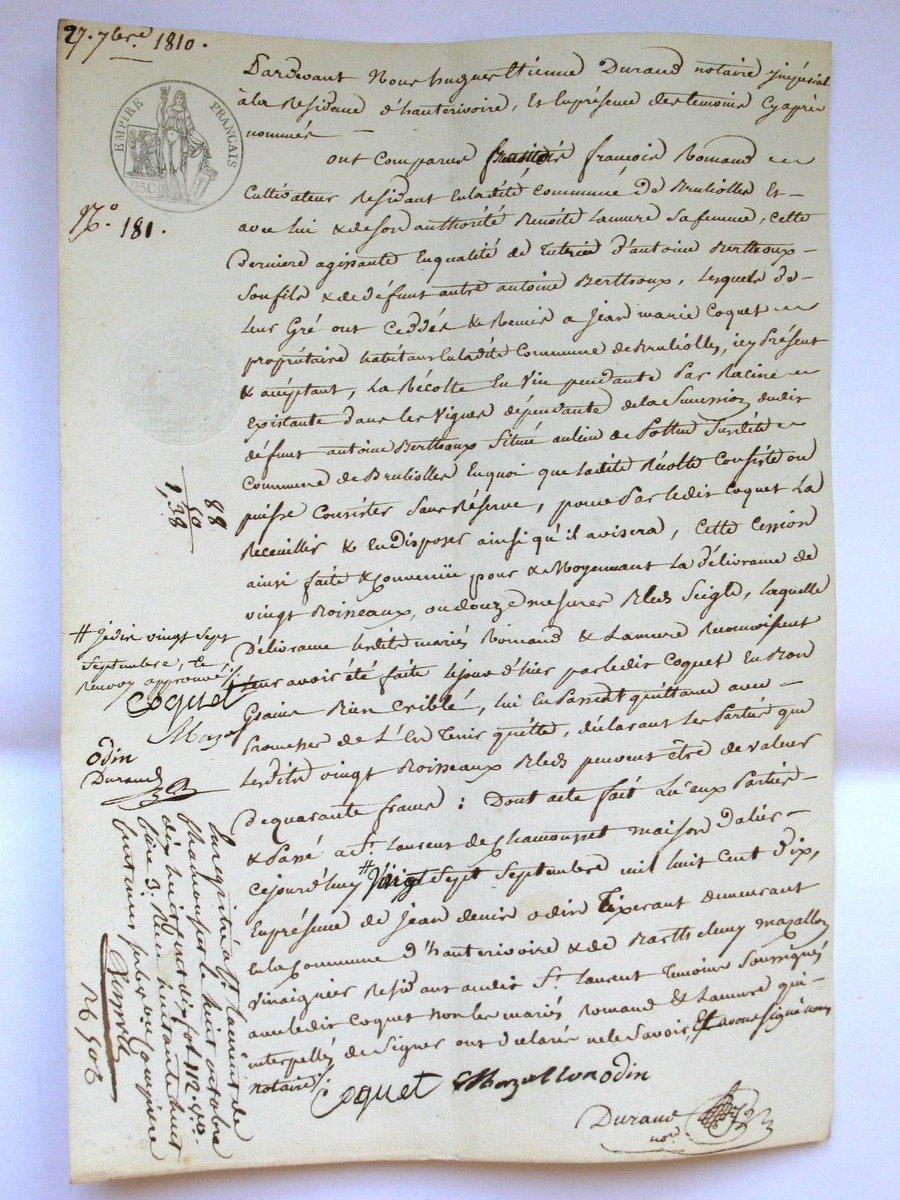 27. 7bre. 1810.
EMPIRE FRANÇAIS
25C
N.° 181.
Pardevant Nous hugues Etienne Durand notaire impérial
à la Residance d'hauterivoire, Et En présence des temoins Cyaprès
nommés
ont Comparus françois Romand
Cultivateur Residant En la dité Communé de Brulliolles Et
avec lui & de son authorité Benoite Lamure Sa femme, Cette
Derniere agissante En qualité de tutrice d'antoine Bertheaux
Son fils & de défunt autre antoine Bertheaux, Lesquels de
leur Gré ont Ceddés & Remis a Jean marie Coquet
propriétaire habitant En la dité Commune de Brulliolles, icy Présent
& acceptant, La Récolte En Vin pendante Par Racine
Existante dans les Vignes dépendante de la Succession dudit
défunt antoine Bertheaux Situé au lieu de Pottu Susdité
Commune de Brulliolles En quoi que ladité Récolté Consisté ou
puisse Consister Sans Réserve, pour Par ledit Coquet La
Receuillir & En disposer ainsi qu'il avisera, Cette Cession
ainsi faite & Convenüe pour & Moyennant La délivrance de
vingt Boisseaux, ou douze mesures Bled Seigle, laquelle
Délivrance lesdits mariés Romand & Lamure Reconnoissent
leur avoir été faite le jour d'hier par ledit Coquet En Bon
Grains Bien Criblé, lui En Passent quittance avec
Promesses de L'En Tenir quitte, déclarant les Parties que
Lesdits vingt Boisseaux Bled peuvent être de valeur
de quarante francs : Dont acte fait Lu aux Parties
& Passé a St. Laurent de Chamousset maison Dalier
Cejourd'huy # Vingt Sept Septembre mil huit Cent Dix,
En présence de Jean denis odin Tixerant demeurant
En la Commune d'hauterivoire & de Barthelemy mazallon
Vinaigrier Residant audit St. Laurent Temoins Soussignés
avec ledit Coquet non les mariés Romand & Lamure qui
interpellés de Signer ont déclarés ne le Savoir, Et avons signé nous
notaire/.
Coquet Mazallon odin
Durand
not.
88
50
1,38
# Jedis vingt Sept
Septembre, le
Renvoy approuvé/.
Coquet
Maz
odin
Durand
Enregistré a St. Laurent de
Chamousset le huit octobre
dix huit cent dix fol 112 V°
Case 3. Reçu huit
centimes